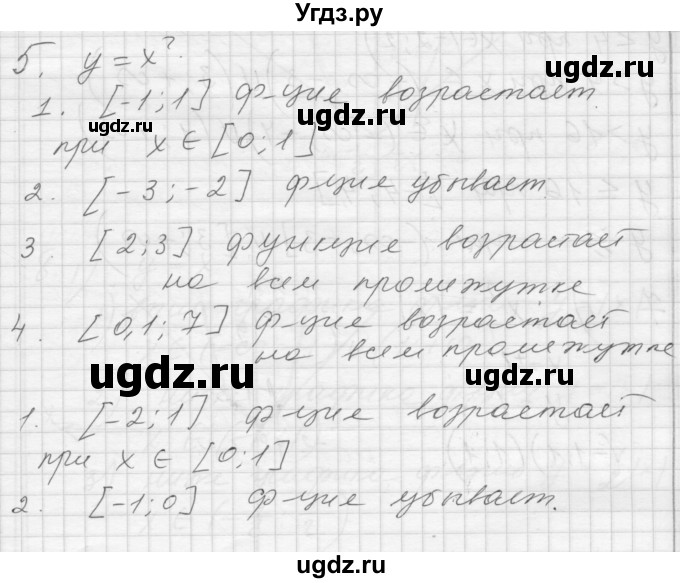 Угдз.ру
5. y = x².
ugdz.ru
1. [-1; 1] ф-ция возрастает.
ugdz.ru
при x ∈ [0; 1]
ugdz.ru
2. [-3; -2] ф-ция убывает.
3. [2; 3] функция возрастает
на всем промежутке
4. [0,1; 7] ф-ция возрастает
на всем промежутке
ugdz.ru
ugdz.ru
1. [-2; 1] ф-ция возрастает
при x ∈ [0; 1]
ugdz.ru
2. [-1; 0] ф-ция убывает.
ugdz.ru
ugdz.ru
ugdz.ru